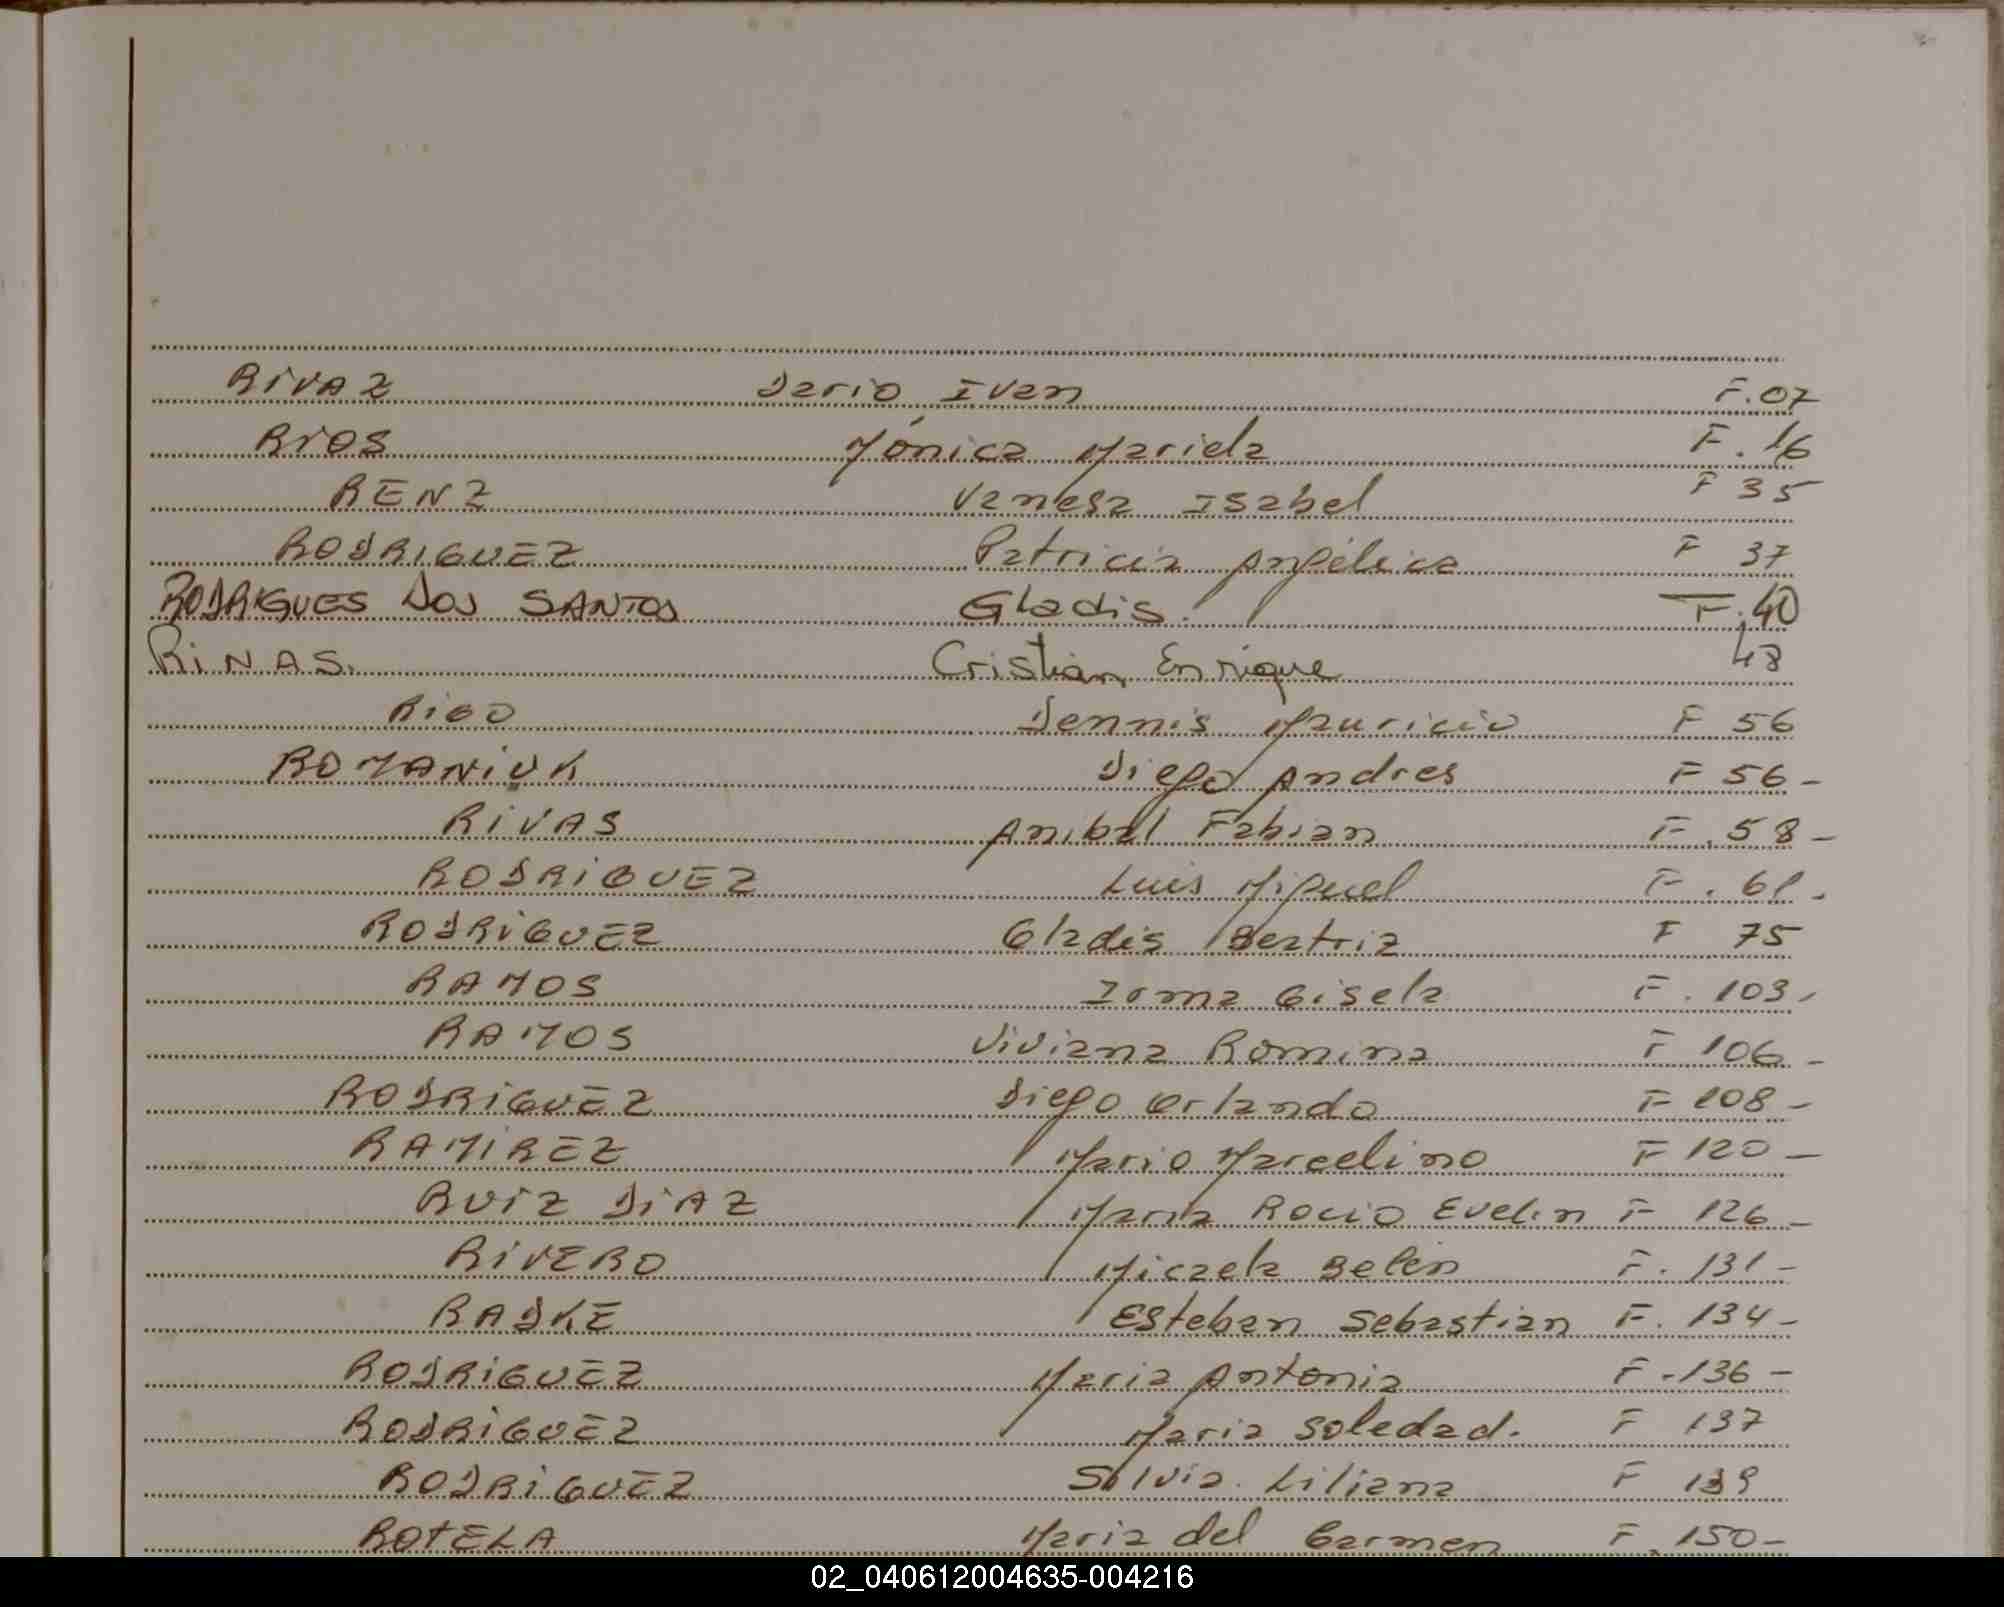 RIVAZ Dario Ivan F.07
RIOS Mónica Mariela F.16
RENZ Vanesa Isabel F 35
RODRIGUEZ Patricia Angélica F 37
RODRIGUES DOS SANTOS Gladis. F.40
RINAS. Cristian Enrique 48
RIGO Dennis Mauricio F 56
ROMANIUK Diego Andres F 56-
RIVAS Anibal Fabian F.58-
RODRIGUEZ Luis Miguel F.61.
RODRIGUEZ Gladis Beatriz F 75
RAMOS Irma Gisela F.103.
RAMOS Viviana Romina F 106-
RODRIGUEZ Diego Orlando F 108-
RAMIREZ Mario Marcelino F 120-
RUIZ DIAZ Maria Rocio Evelin F 126-
RIVERO Micaela Belén F.131-
RADKE Esteban Sebastian F.134-
RODRIGUEZ Maria Antonia F-136-
RODRIGUEZ Maria Soledad. F 137
RODRIGUEZ Silvia. Liliana F 139
ROTELA Maria del Carmen F.150-
02_040612004635-004216